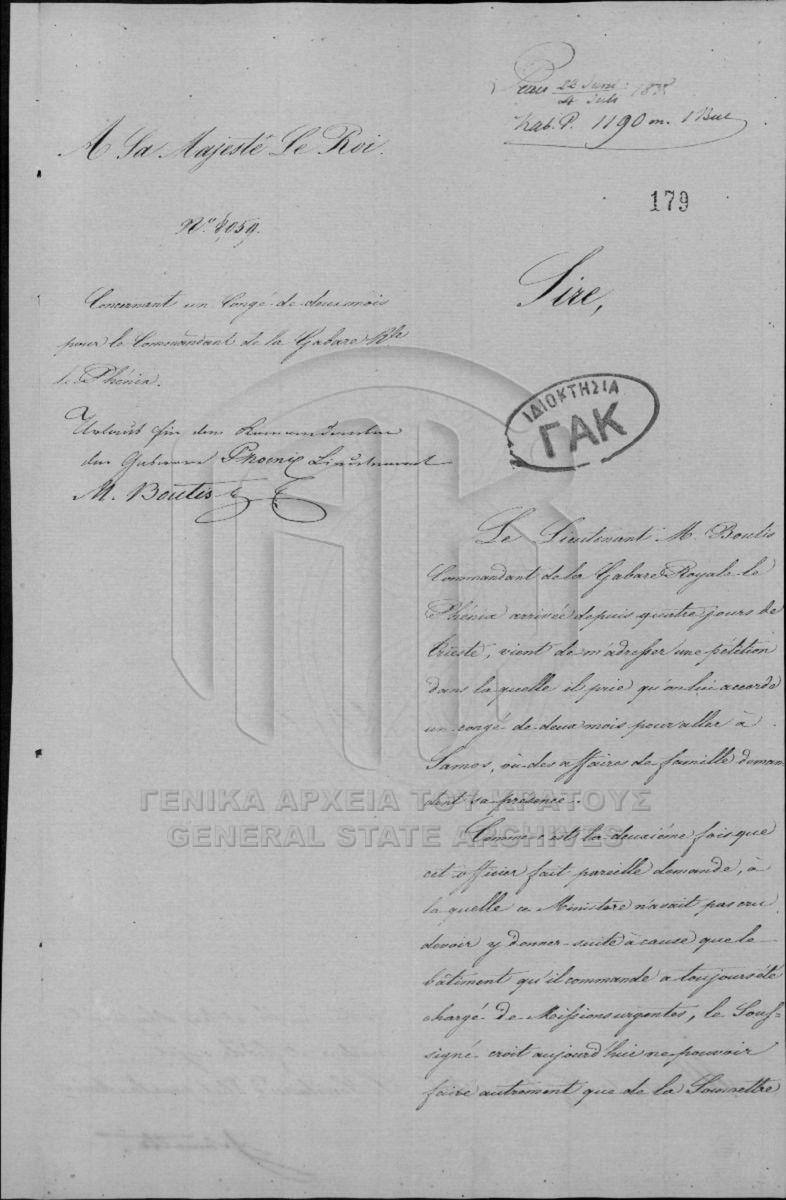 A Sa Majesté Le Roi.
Nº 8059.
Concernant un Congé de deux mois
pour le Commandant de la Gabare Rle
le Phénix.
Urlaub für den Kommandanten
der Gabarre Phoenix Lieutenant
M. Boutis
Praes 22 Juni / 4 Juli 183
Kab. P. 1190 m. 1 Beil
179
Sire,
ΙΔΙΟΚΤΗΣΙΑ
ΓΑΚ
Le Lieutenant M. Boutis
Commandant de la Gabare Royale le
Phénix arrivée depuis quatre jours de
Trieste, vient de m'adresser une pétition
dans la quelle il prie qu'on lui accorde
un congé de deux mois pour aller à
Samos, où des affaires de famille deman
dent sa présence.
ΓΕΝΙΚΑ ΑΡΧΕΙΑ ΤΟΥ ΚΡΑΤΟΥΣ
GENERAL STATE ARCHIVES
Comme c'est la deuxième fois que
cet officier fait pareille demande, à
la quelle ce Ministère n'avait pas cru
devoir y donner suite à cause que le
bâtiment qu'il commande a toujours été
chargé de Missions urgentes, le Sous-
signé croit aujourd'hui ne pouvoir
faire autrement que de la Soumettre